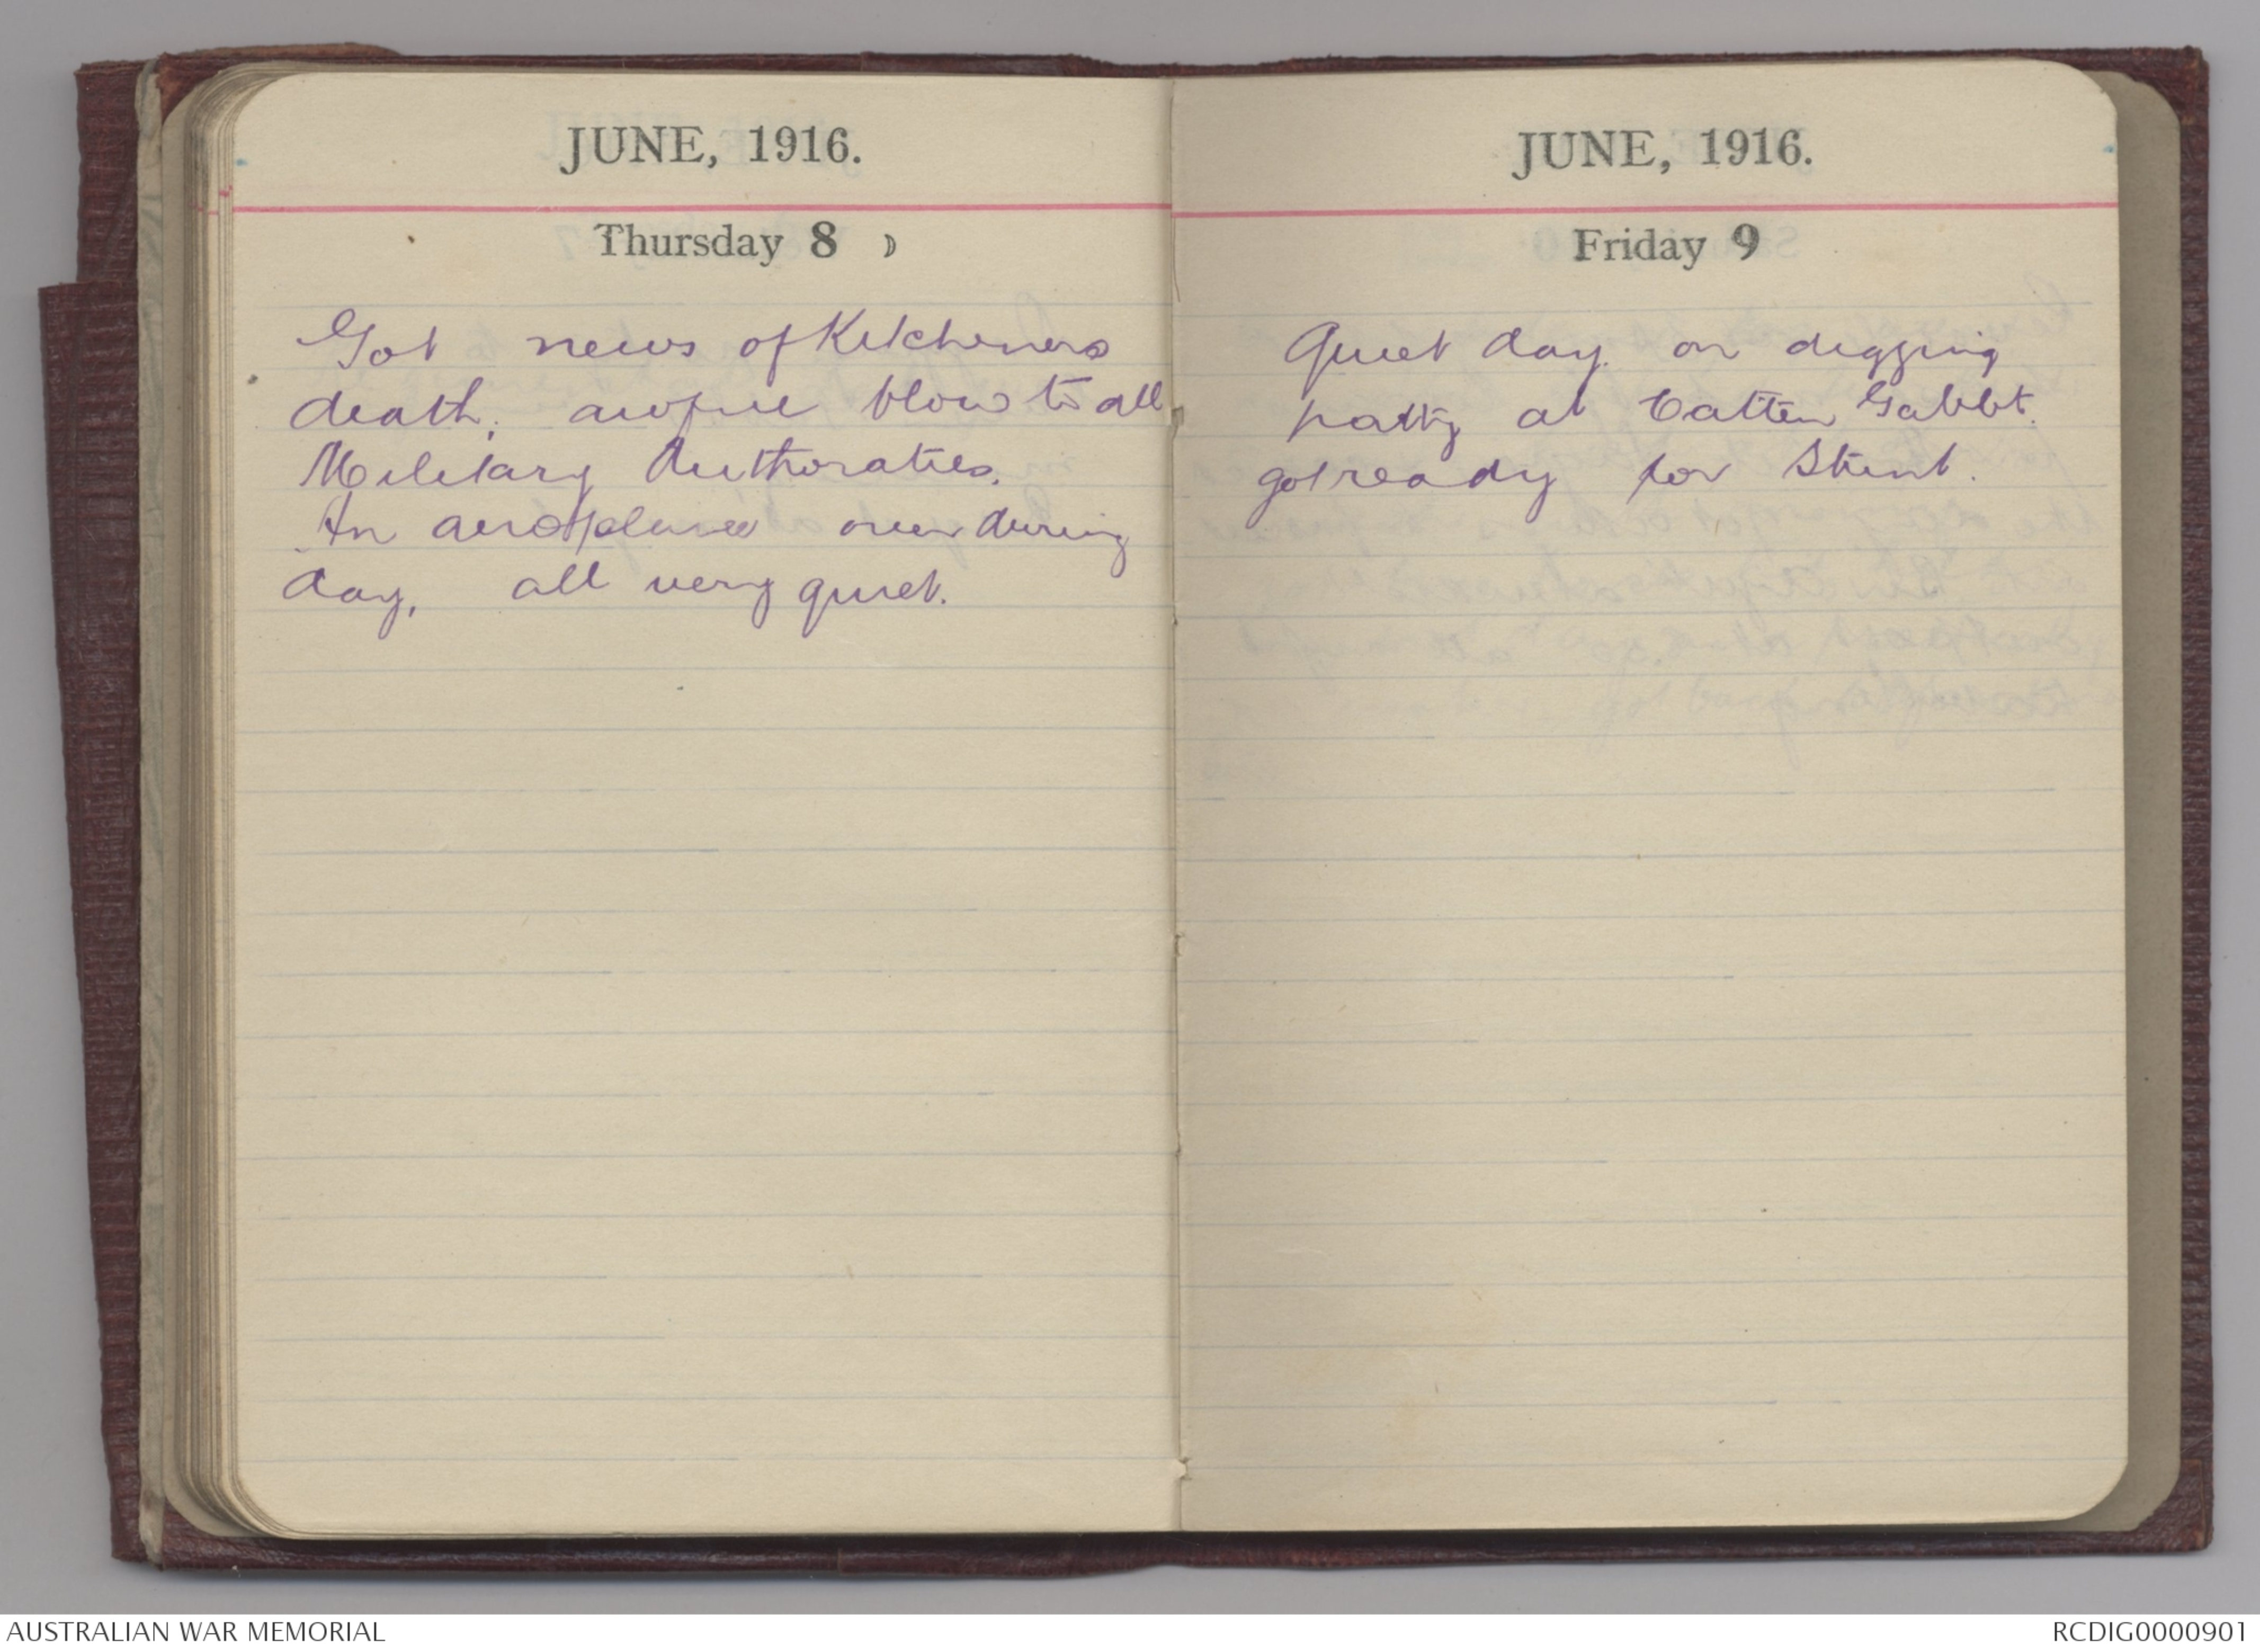 JUNE, 1916.
Thursday 8
Got news of Kitcheners
death, awful blow to all
Military Authoraties.
An aeroplane over during
day, all very quiet.
JUNE, 1916.
Friday 9
Quiet day. on digging
party at Catten Gabbt.
got ready for Stunt.
AUSTRALIAN WAR MEMORIAL
RCDIG0000901